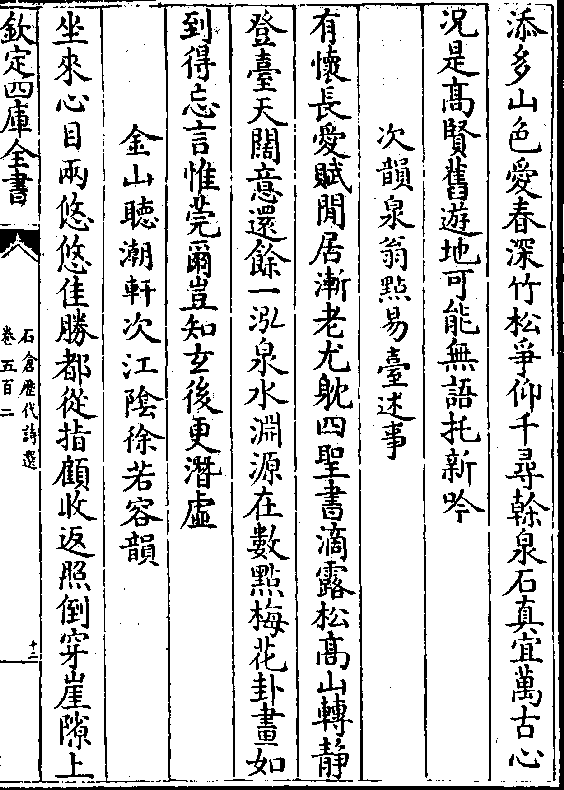 添多山色愛春深竹松爭仰千尋榦泉石真宜萬古心
况是髙賢舊遊地可能無語托新吟
次韻泉翁點易臺述事
有懐長愛賦閒居漸老尤躭四聖書滴露松髙山轉静
登臺天闊意還餘一泓泉水淵源在數點梅花卦畫如
到得忘言惟莞爾豈知玄後更潛虚
金山聽潮軒次江陰徐若容韻
坐來心目兩悠悠佳勝都從指顧收返照倒穿崖隙上
欽定四庫全書
石倉歴代詩選
卷五百二
十二